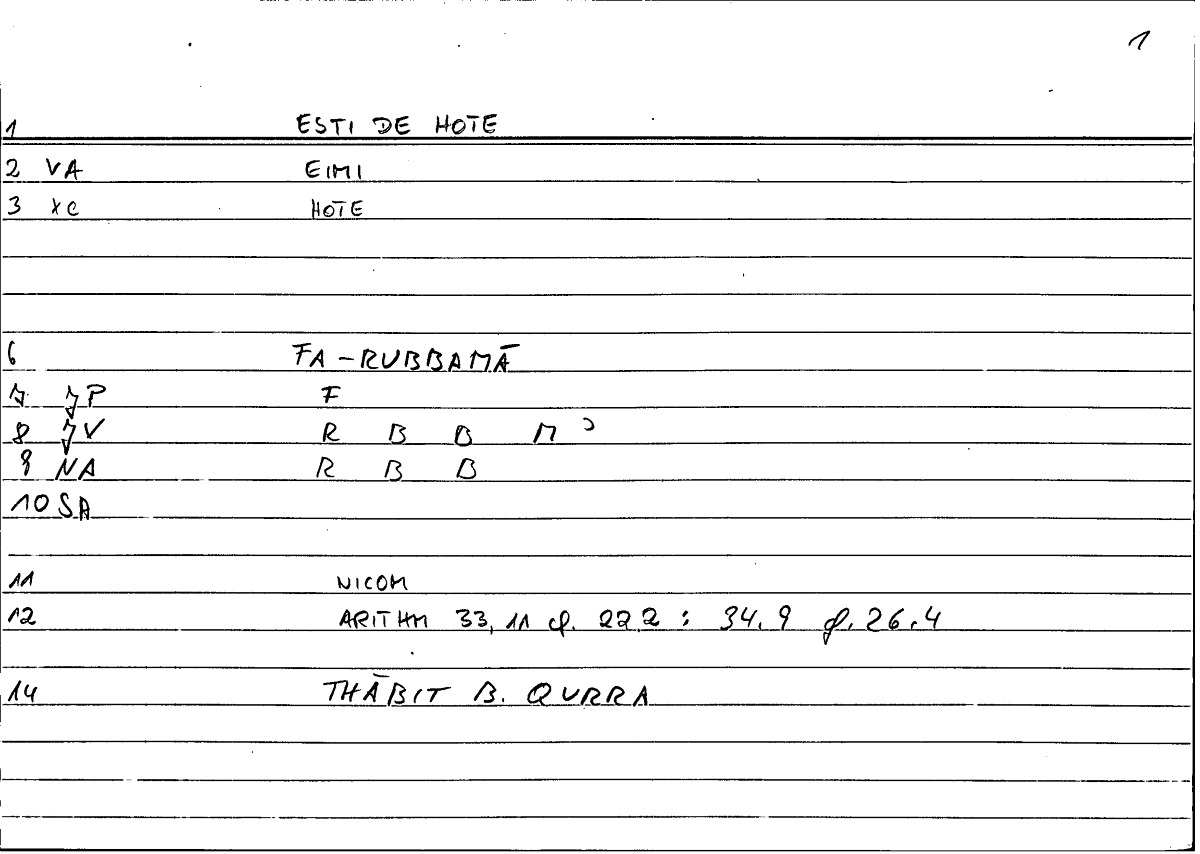 1
1 ESTI DE HOTE
2 VA EIMI
3 XC HOTE
6 FA-RUBBAMĀ
7 JP F
8 JV R B B M ʾ
9 NA R B B
10 SA
11 NICOM
12 ARITHM 33, 11 cf. 22.2 : 34.9 cf. 26.4
14 THĀBIT B. QURRA